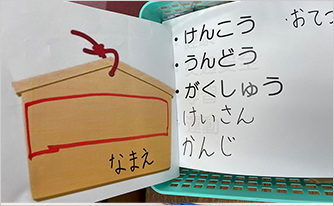 なまえ
・けんこう
・うんどう
・がくしゅう
けいさん
かんじ
・おてつ